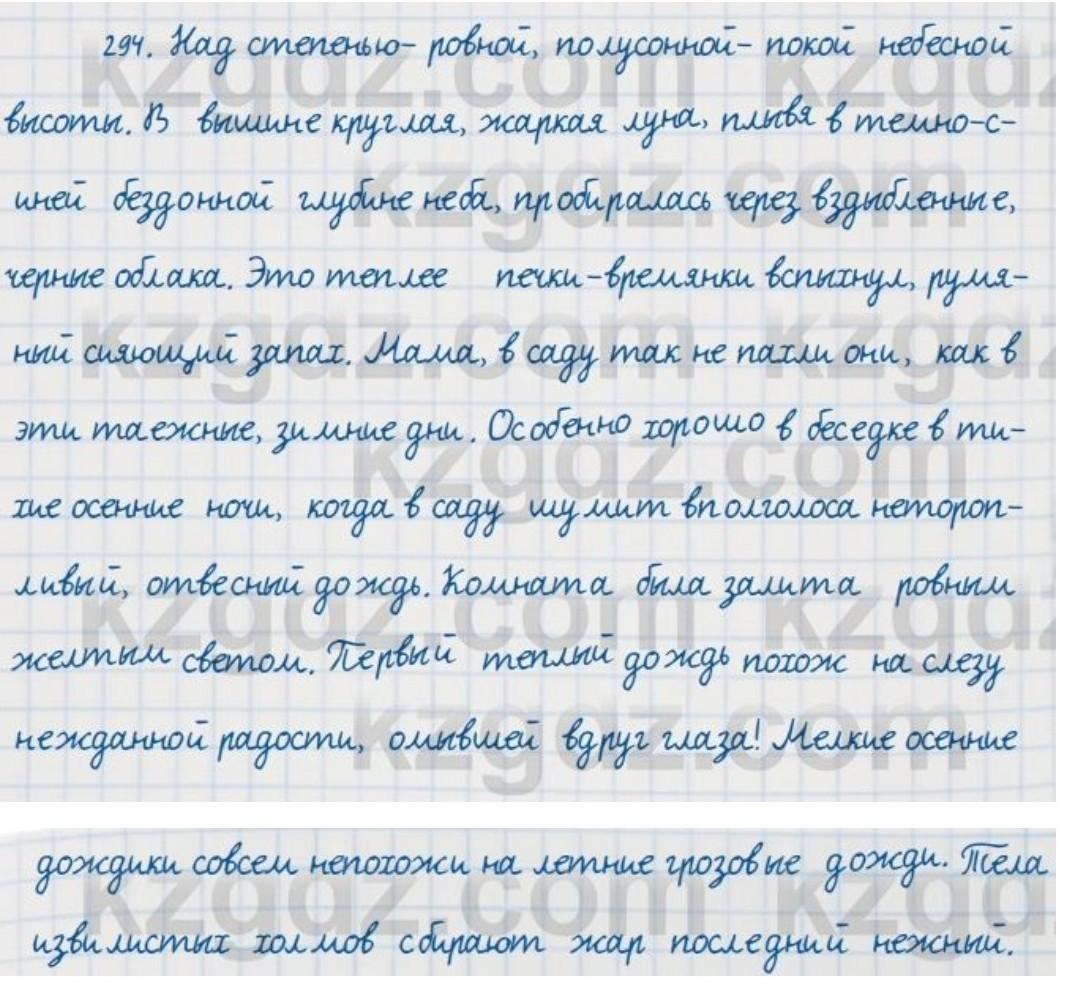 294. Над степенью- ровной, полусонной- покой небесной
высоты. В вышине круглая, жаркая луна, плывя в темно-с-
иней бездонной глубине неба, пробиралась через вздыбленные,
черные облака. Это теплее печки-времянки вспыхнул, румя-
ный сияющий запах. Мама, в саду так не пахли они, как в
эти таежные, зимние дни. Особенно хорошо в беседке в ти-
хие осенние ночи, когда в саду шумит вполголоса нетороп-
ливый, отвесный дождь. Комната была залита ровным
желтым светом. Первый теплый дождь похож на слезу
нежданной радости, омывшей вдруг глаза! Мелкие осенние
дождики совсем непохожи на летние грозовые дожди. Тела
извилистых холмов сбирают жар последний нежный.
kzgdz.com